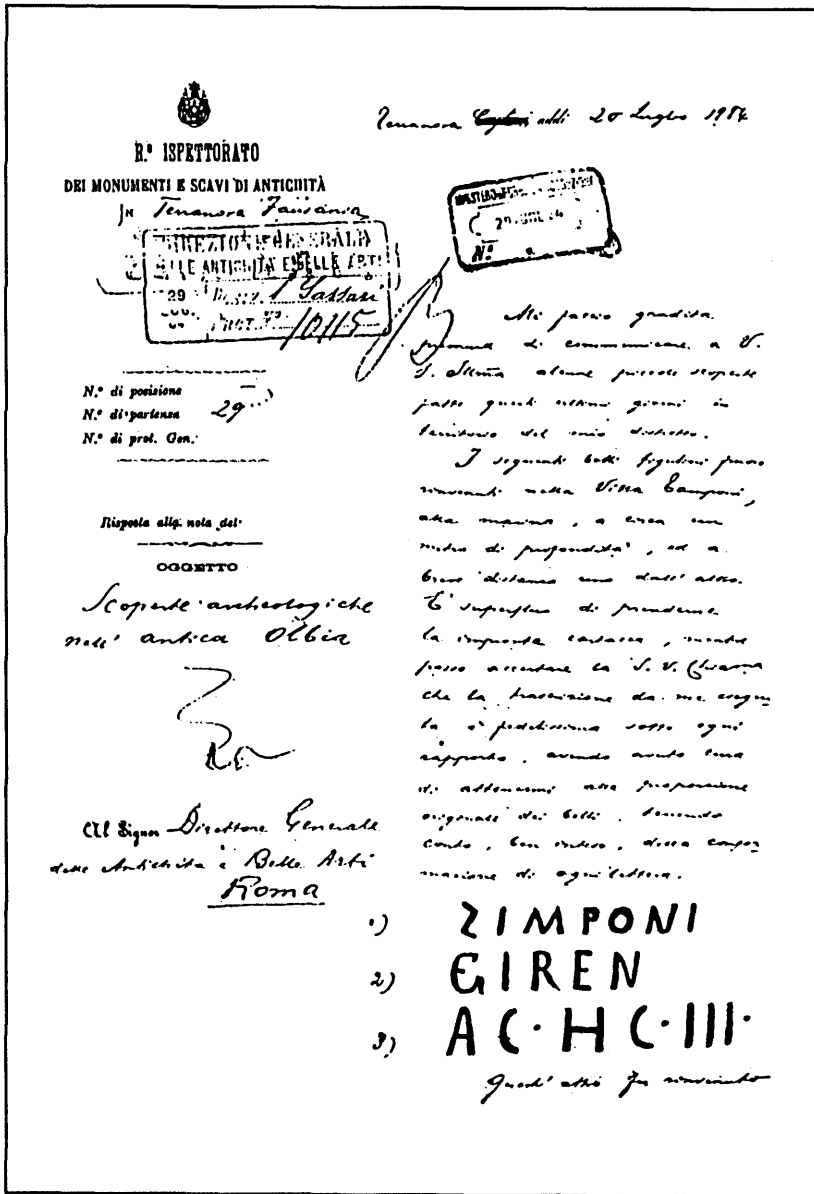 Terranova addì 20 Luglio
R.º ISPETTORATO
DEI MONUMENTI E SCAVI DI ANTICHITÀ
In Terranova Fausania
DIREZIONE GENERALE
DELLE ANTICHITÀ E BELLE ARTI
29
Sassari
Nº
N.º di posizione
N.º di partenza 29
N.º di prot. Gen.
Risposta alla nota del
OGGETTO
Scoperte archeologiche
nell' antica Olbia
Al Signor Direttore Generale
delle Antichità e Belle Arti
Roma
Mi faccio gradita
premura di communicare a V.
S. Illma alcune piccole scoperte
fatte questi ultimi giorni in
territorio del mio distretto.
I seguenti bolli figulini furono
rinvenuti nella Vissa Tamponi,
alla marina, a circa un
metro di profondità, ed a
breve distanza uno dall' altro.
È superfluo di prenderne
la impronta cartacea, mentre
posso accertare la S. V.
che la trascrizione da me esegui-
ta è fedelissima sotto ogni
rapporto, avendo avuto cura
di attenermi alla proporzione
originale dei bolli, tenendo
conto, ben inteso, della confor-
mazione di ogni lettera.
1) ZIMPONI
2) GIREN
3) AC·HC·III·
Quest' altro fu rinvenuto